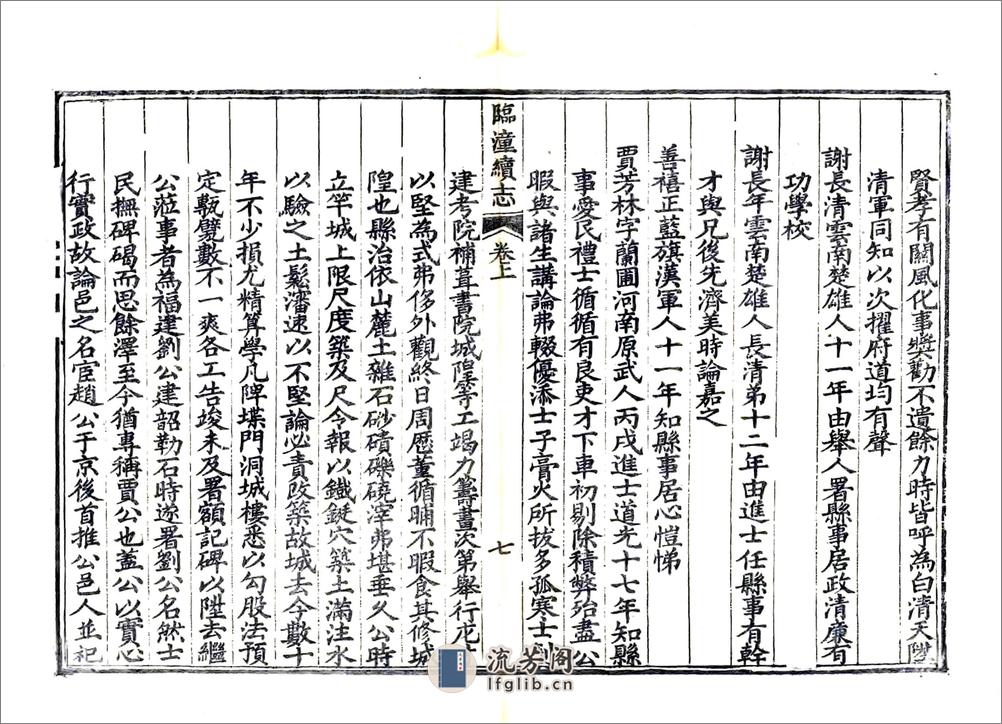 賢孝有關風化事獎勸不遺餘力時皆呼為白清天陞
清軍同知以次擢府道均有聲
謝長清雲南楚雄人十一年由舉人署縣事居政清廉有
功學校
謝長年雲南楚雄人長清弟十二年由進士任縣事有幹
才與兄後先濟美時論嘉之
善禧正藍旗漢軍人十一年知縣事居心愷悌
賈芳林字蘭圃河南原武人丙戌進士道光十七年知縣
事愛民禮士循循有良吏才下車初剔除積弊殆盡公
暇與諸生講論弗輟優添士子膏火所拔多孤寒士
臨潼續志
卷上
七
建考院補葺書院城隍等工竭力籌畫次第舉行
以堅為式弗侈外觀終日周歷董循晡不暇食其修城
隍也縣治依山麓土雜石砂磧礫磽滓弗堪垂久公時
立竿城上限尺度築及尺令報以鐵鋌穴築土滿注水
以驗之土鬆瀋速以不堅論必責改築故城去今數十
年不少損尤精算學凡陴堞門洞城樓悉以勾股法預
定甎甓數不一爽各工告竣未及署額記碑以陞去繼
公蒞事者為福建劉公建韶勒石時遂署劉公名然士
民撫碑碣而思餘澤至今猶專稱賈公也蓋公以實心
行實政故論邑之名宦趙公于京後首推公邑人並祀
流芳閣
lfglib.cn